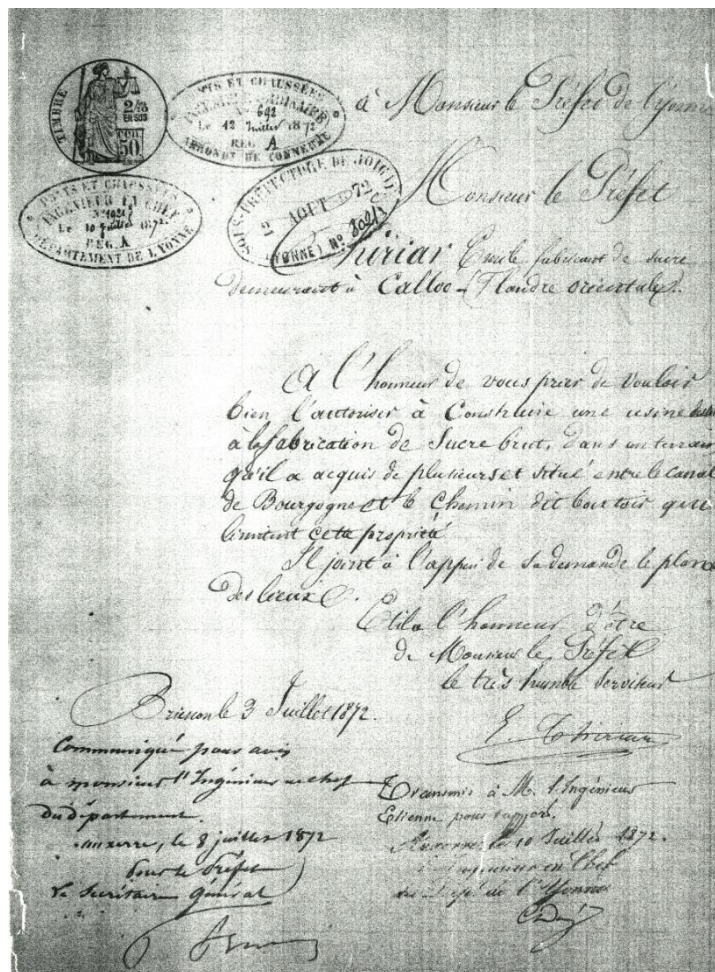 TIMBRE
2/10
EN SUS
50
PONTS ET CHAUSSÉES
INGÉNIEUR ORDINAIRE
N° 692
Le 12 Juillet 1872
REG. A
ARRONDT DE TONNERRE
PONTS ET CHAUSSÉES
INGÉNIEUR EN CHEF
Le 10 juillet 1872.
REG. A
DÉPARTEMENT DE L'YONNE
SOUS-PRÉFECTURE DE JOIGNY
2 AOUT 72
(YONNE) N°
à Monsieur le Préfet de l'Yonne
Monsieur le Préfet
Thiriar Emile fabricant de sucre
demeurant à Calloo - Flandre orientale.
A l'honneur de vous prier de vouloir
bien l'autoriser à Construire une usine
à la fabrication de Sucre brut, dans un terrain
qu'il a acquis de plusieurs et situé entre le canal
de Bourgogne et le Chemin dit Courtoir qui
limitent cette propriété
Il joint à l'appui de sa demande le plan
des lieux.
Et il a l'honneur d'être
de Monsieur le Préfet
le très humble Serviteur
Brienon le 3 Juillet 1872.
E. Thiriar
Communiqué pour avis
à monsieur l'Ingénieur en chef
du département.
auxerre, le 8 juillet 1872
Pour le Préfet
Le Secrétaire Général
Transmis à M. l'Ingénieur
Etienne pour rapport.
Auxerre le 10 Juillet 1872.
L'Ingénieur en Chef
du Dépt de l'Yonne